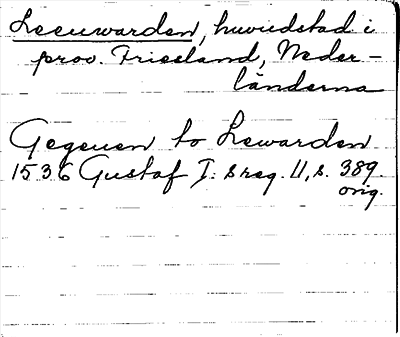 Leeuwarden, huvudstad i
prov. Friesland, Neder-
länderna
Gegeuen to Lewarden
1536 Gustaf I:s reg. 11, s. 389.
orig.